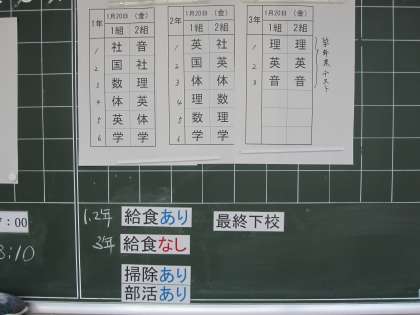 1年 1月20日 (金)
1組 2組
1 社 音
2 国 社
3 数 理
4 体 英
5 英 体
6 学 学
2年 1月20日 (金)
1組 2組
1 英 社
2 国 英
3 体 体
4 理 数
5 数 理
6 学 学
3年 1月20日 (金)
1組 2組
1 理 理
2 英 英
3 音 音
学年末テスト
1.2年 給食あり 最終下校
3年 給食なし
掃除あり
部活あり
:00
8:10